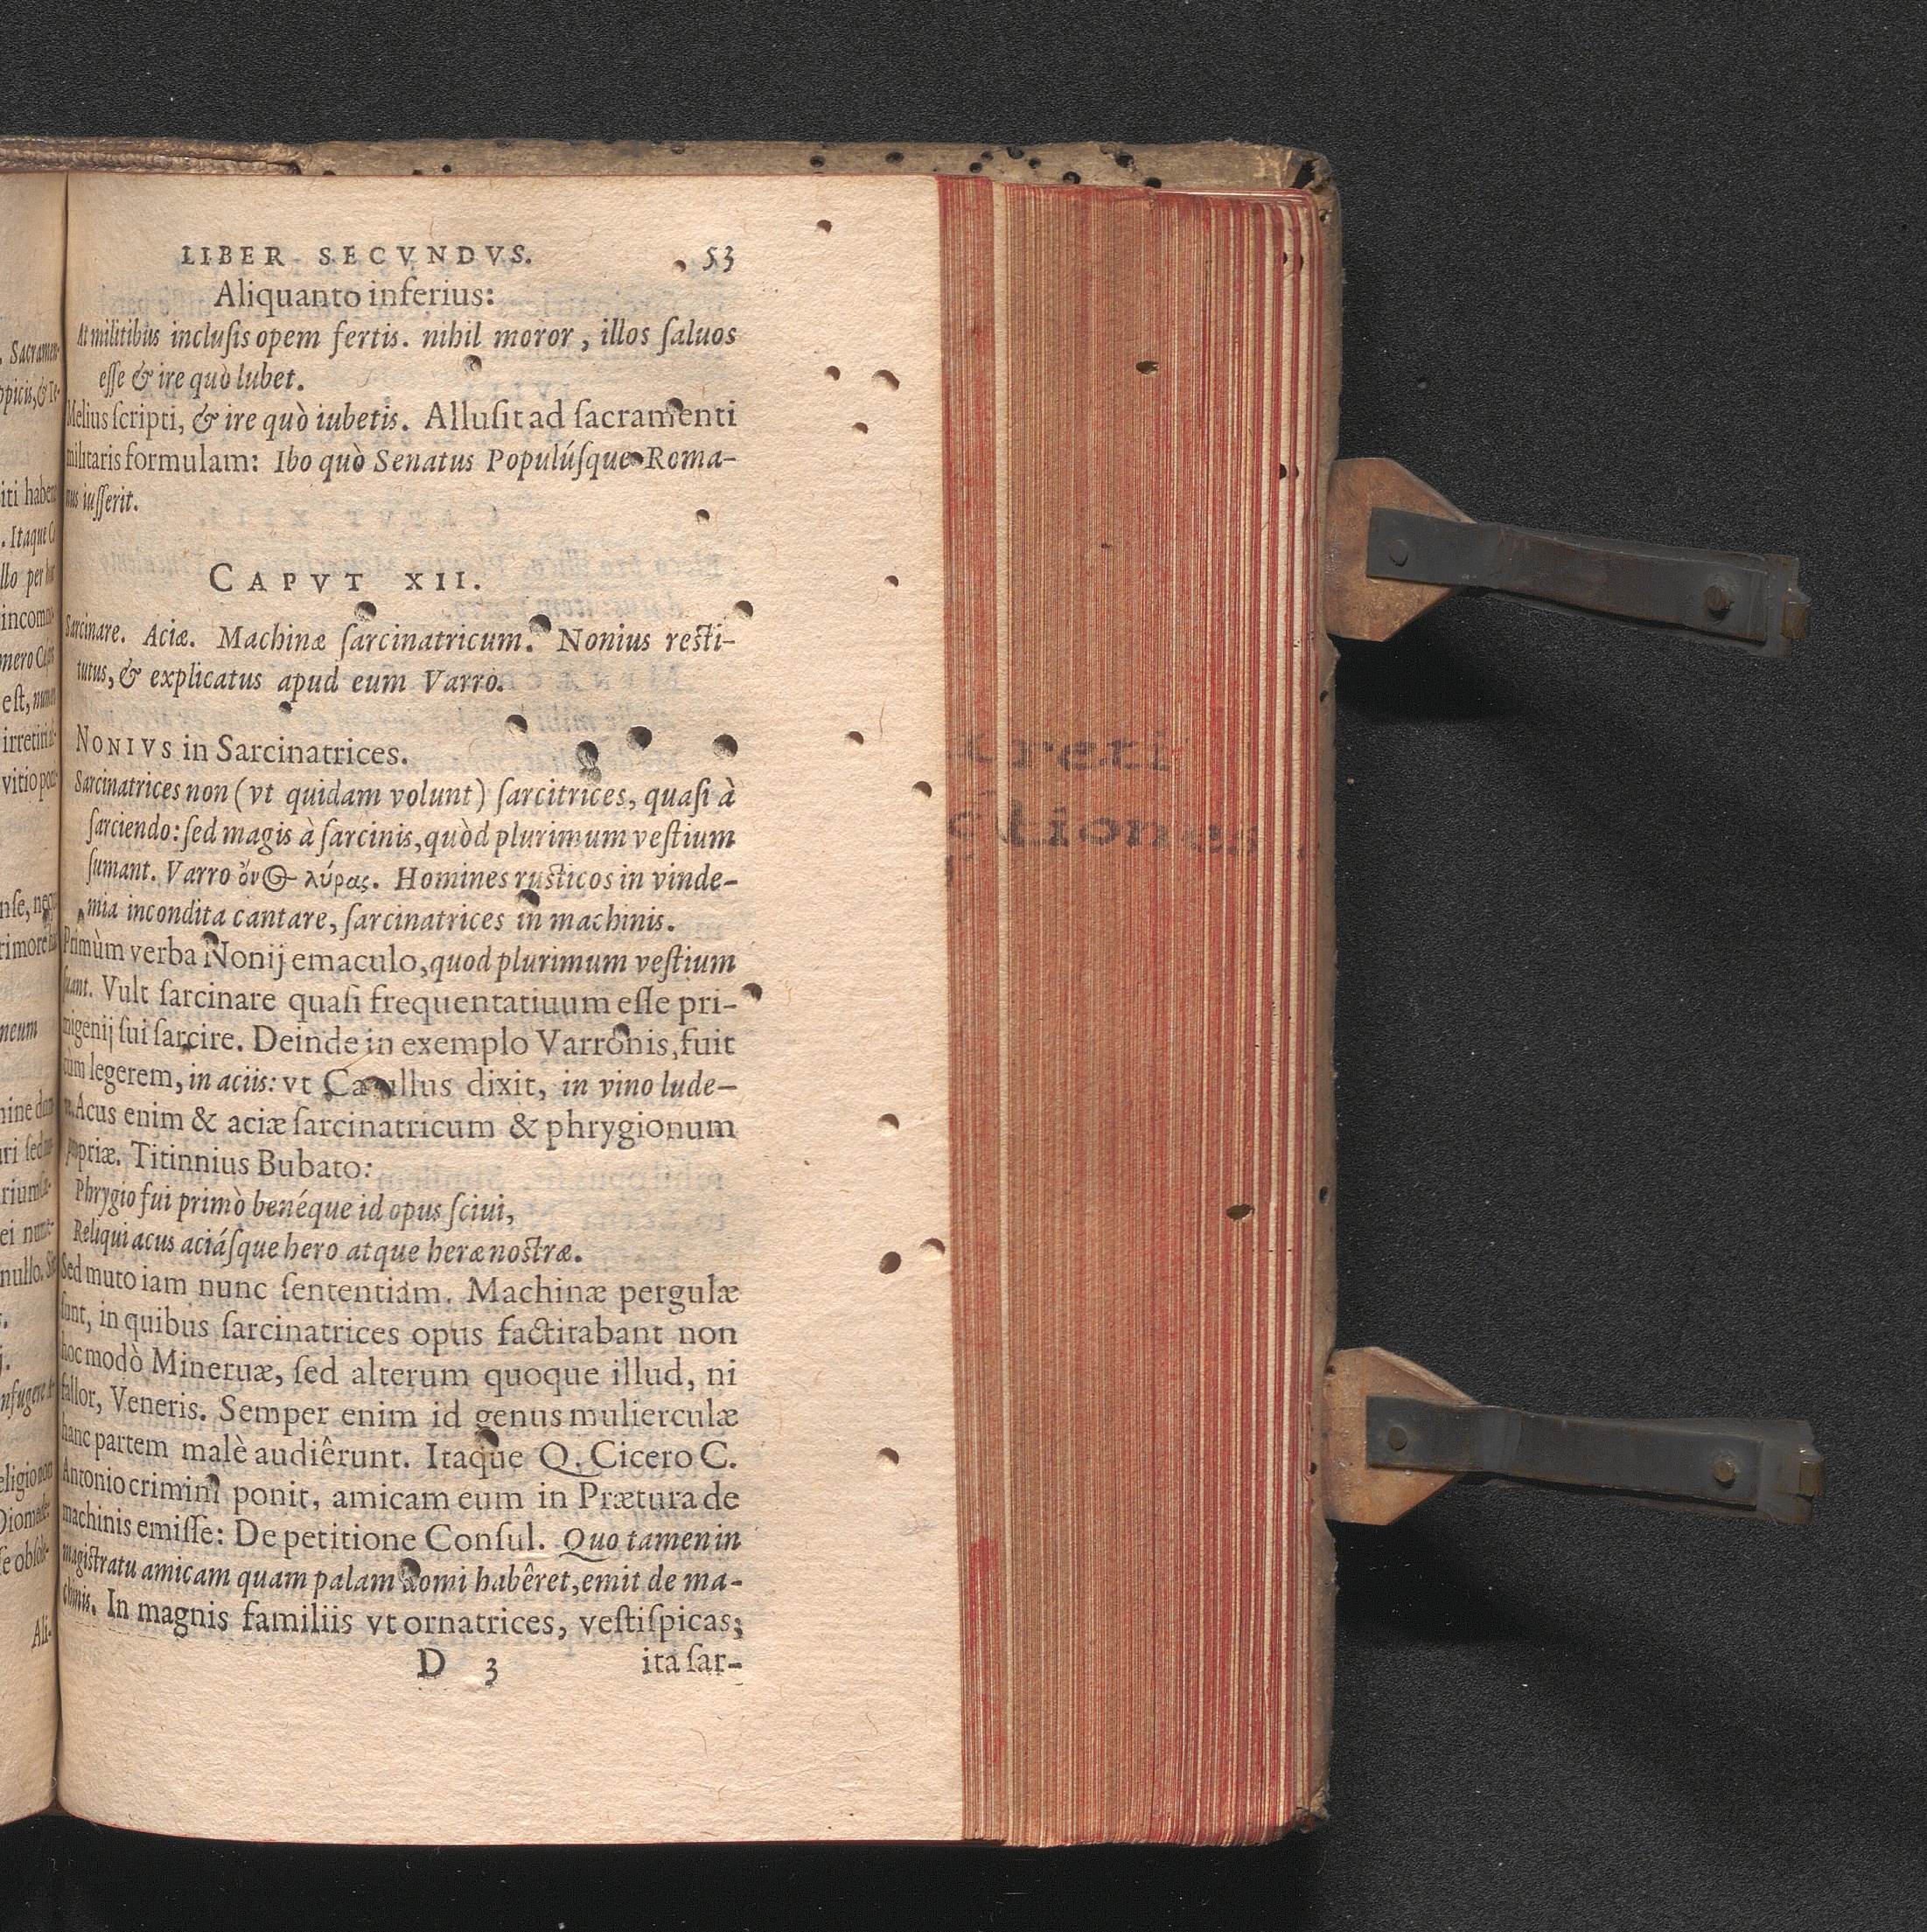 LIBER SECVNDVS. 53
Aliquanto inferius:
At militibus inclusis opem fertis. nihil moror, illos saluos
esse & ire quò lubet.
Melius scripti, & ire quò iubetis. Allusit ad sacramenti
militaris formulam: Ibo quò Senatus Populúsque Roma-
nus iusserit.
CAPVT XII.
Sarcinare. Aciæ. Machinæ sarcinatricum. Nonius resti-
tutus, & explicatus apud eum Varro.
NONIVS in Sarcinatrices.
Sarcinatrices non (vt quidam volunt) sarcitrices, quasi à
sarciendo: sed magis à sarcinis, quòd plurimum vestium
sumant. Varro ὄνος λύρας. Homines rusticos in vinde-
mia incondita cantare, sarcinatrices in machinis.
Primùm verba Nonij emaculo, quod plurimum vestium
suant. Vult sarcinare quasi frequentatiuum esse pri-
migenij sui sarcire. Deinde in exemplo Varronis, fuit
cùm legerem, in aciis: vt Catullus dixit, in vino lude-
Acus enim & aciæ sarcinatricum & phrygionum
propriæ. Titinnius Bubato:
Phrygio fui primò benéque id opus sciui,
Reliqui acus aciásque hero atque heræ nostræ.
Sed muto iam nunc sententiam. Machinæ pergulæ
sunt, in quibus sarcinatrices opus factitabant non
hoc modò Mineruæ, sed alterum quoque illud, ni
fallor, Veneris. Semper enim id genus mulierculæ
hanc partem malè audiêrunt. Itaque Q. Cicero C.
Antonio crimini ponit, amicam eum in Prætura de
machinis emisse: De petitione Consul. Quo tamen in
magistratu amicam quam palam domi habêret, emit de ma-
chinis. In magnis familiis vt ornatrices, vestispicas;
D 3 ita sar-